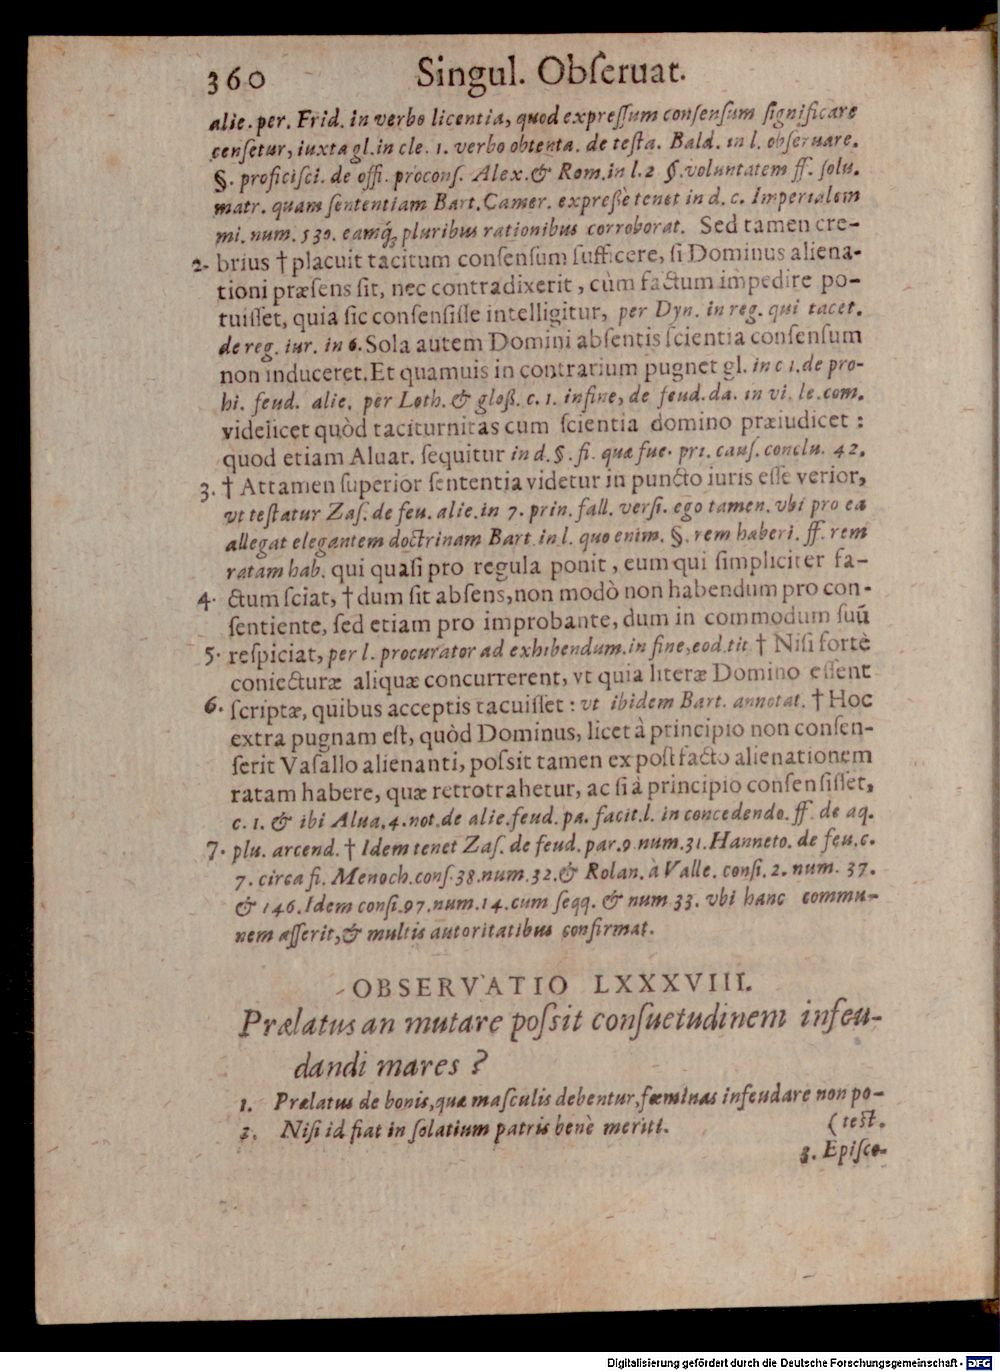 360 Singul. Obſeruat.
alie. per. Frid. in verbo licentia, quod expreſſum conſenſum ſignificare
cenſetur, iuxta gl. in cle. 1. verbo obtenta. de teſta. Bald. in l. obſeruare.
§. proficiſci. de offi. proconſ. Alex. & Rom. in l. 2 §. voluntatem ff. ſolu.
matr. quam ſententiam Bart. Camer. expreßè tenet in d. c. Imperialem
mi. num. 530. eamq́; pluribus rationibus corroborat. Sed tamen cre-
2. brius † placuit tacitum conſenſum ſufficere, ſi Dominus aliena-
tioni præſens ſit, nec contradixerit, cùm factum impedire po-
tuiſſet, quia ſic conſenſiſſe intelligitur, per Dyn. in reg. qui tacet.
de reg. iur. in 6. Sola autem Domini abſentis ſcientia conſenſum
non induceret. Et quamuis in contrarium pugnet gl. in c 1. de pro-
hi. feud. alie. per Loth. & gloß. c. 1. in fine, de feud. da. in vi. le. com.
videlicet quòd taciturnitas cum ſcientia domino præiudicet :
quod etiam Aluar. ſequitur in d. §. fi. quæ fue. pri. cauſ. conclu. 42.
3. † Attamen ſuperior ſententia videtur in puncto iuris eſſe verior,
vt teſtatur Zaſ. de feu. alie. in 7. prin. fall. verſi. ego tamen. vbi pro ea
allegat elegantem doctrinam Bart. in l. quo enim. §. rem haberi. ff. rem
ratam hab. qui quaſi pro regula ponit, eum qui ſimpliciter fa-
4. ctum ſciat, † dum ſit abſens, non modò non habendum pro con-
ſentiente, ſed etiam pro improbante, dum in commodum ſuū
5. reſpiciat, per l. procurator ad exhibendum. in fine, eod. tit † Niſi fortè
coniecturæ aliquæ concurrerent, vt quia literæ Domino eſſent
6. ſcriptæ, quibus acceptis tacuiſſet : vt ibidem Bart. annotat. † Hoc
extra pugnam eſt, quòd Dominus, licet à principio non conſen-
ſerit Vaſallo alienanti, poſsit tamen ex poſt facto alienationem
ratam habere, quæ retrotrahetur, ac ſi à principio conſenſiſſet,
c. 1. & ibi Alua. 4. not. de alie. feud. pa. facit. l. in concedendo. ff. de aq.
7. plu. arcend. † Idem tenet Zaſ. de feud. par. 9. num. 31. Hanneto. de feu. c.
7. circa fi. Menoch. conſ. 38. num. 32. & Rolan. à Valle. conſi. 2. num. 37.
& 146. Idem conſi. 97. num. 14. cum ſeqq. & num 33. vbi hanc commu-
nem aſſerit, & multis autoritatibus confirmat.
OBSERVATIO LXXXVIII.
Prælatus an mutare poſsit conſuetudinem infeu-
dandi mares ?
1. Prælatus de bonis, quæ maſculis debentur, fœminas infeudare non po-
2. Niſi id fiat in ſolatium patris benè meriti. (teſt.
3. Epiſco-
Digitalisierung gefördert durch die Deutsche Forschungsgemeinschaft - DFG